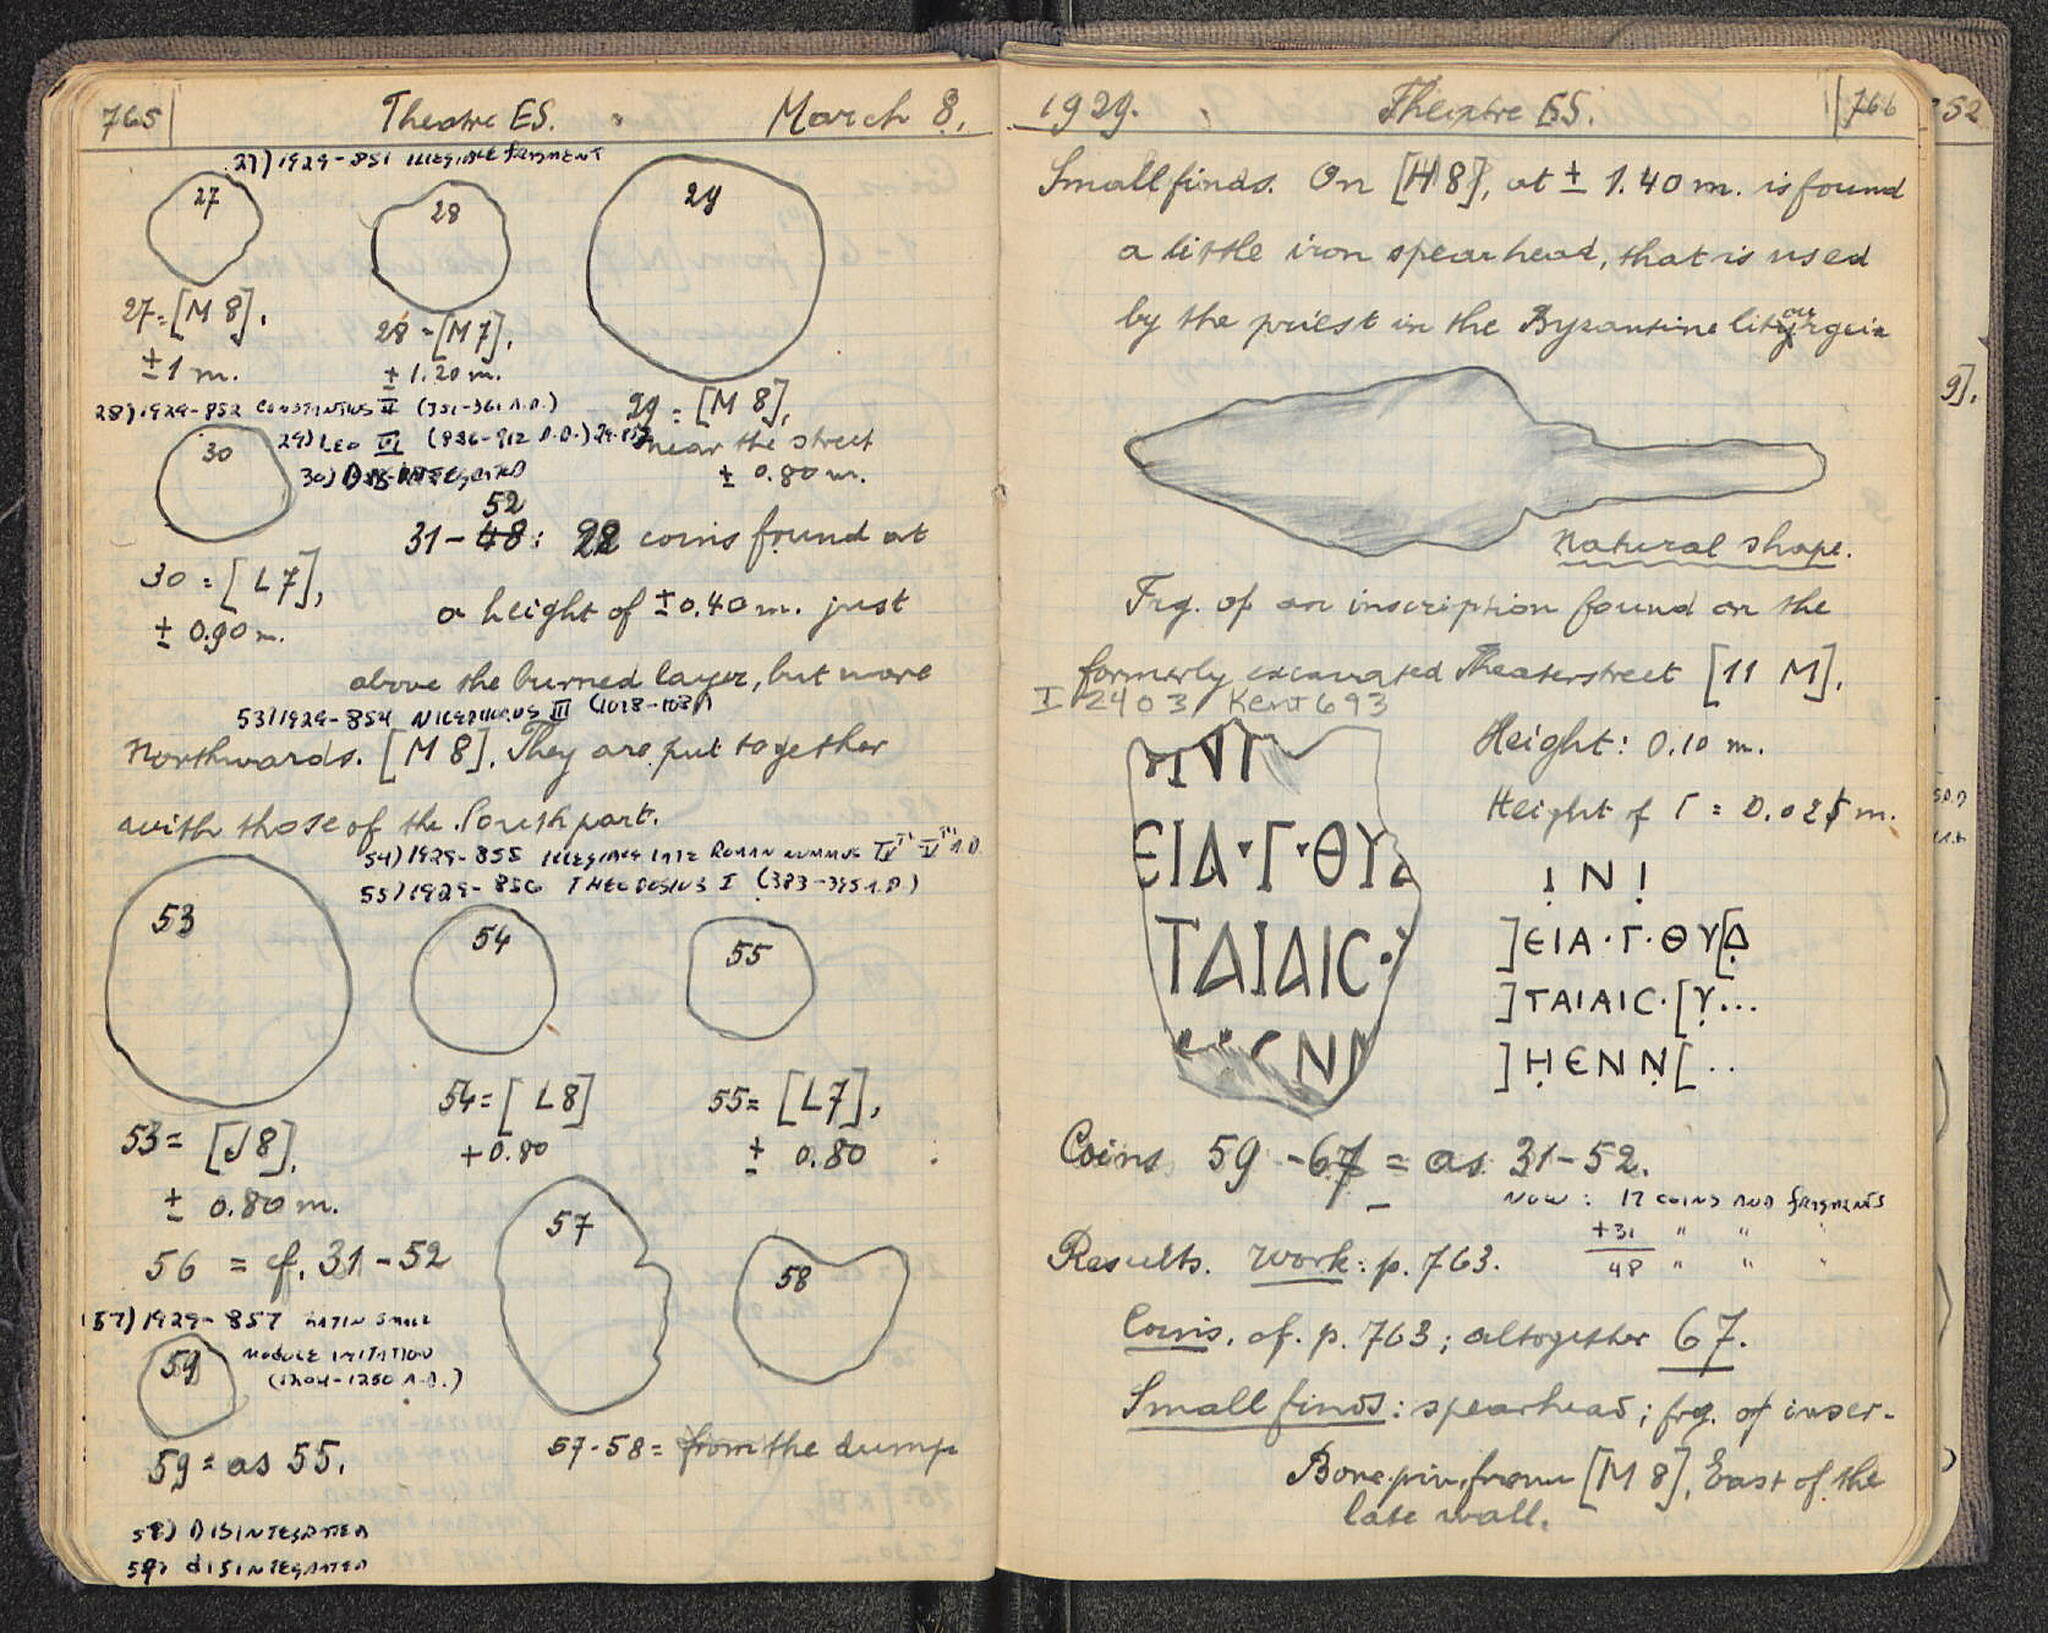 765
Theatre ES.
March 8.
27) 1929-851 ILLEGIBLE FRAGMENT
27
28
29
27=[M 8].
± 1 m.
28=[M7],
± 1.20 m.
28) 1929-852 CONSTANTIUS II (351-361 A.D.)
29 = [M 8],
near the street
± 0.80 m.
29) LEO VI (886-912 A.D.) 29-853
30) DISINTEGRATED
30
30 = [L7],
± 0.90 m.
52
31-48: 22 coins found at
a height of ±0.40 m. just
above the burned layer, but more
53) 1929-854 NICEPHORUS III (1078-1081)
Northwards. [M 8]. They are put together
with those of the South part.
54) 1929-855 ILLEGIBLE LATE ROMAN NUMMUS IV-V A.D.
55) 1929-856 THEODOSIUS I (383-395 A.D.)
53
54
55
53= [J8].
± 0.80 m.
54=[L8]
+0.80
55= [L7],
± 0.80
56 = cf. 31-52
57) 1929-857 LATIN SMALL
MODULE IMITATION
(1204-1250 A.D.)
57
58
59
59 = as 55.
57-58= from the dump
58) DISINTEGRATED
59) DISINTEGRATED
1929.
Theatre ES.
766
Small finds. On [H 8], at ± 1.40 m. is found
a little iron spearhead, that is used
by the priest in the Byzantine
Natural shape.
Frg. of an inscription found on the
formerly excavated Theaterstreet [11 M].
I 2403 Kent 693
ΕΙΑ·Γ·ΘΥΔ
ΤΑΙΑΙC·
ΕΝΝ
Height: 0.10 m.
Height of Γ = 0.025 m.
Ι Ν Ι
]ЄΙΑ·Γ·ΘΥ[Δ
]ΤΑΙΑΙC·[Υ...
]ΗЄΝΝ[..
Coins 59-67 = as 31-52.
NOW: 17 COINS AND FRAGMENTS
+31 " " "
48 " " "
Results. Work: p. 763.
Coins. cf. p. 763; altogether 67.
Small finds: spearhead; frg. of inscr.
Bone pin, from [M 8], East of the
late wall.
52
9].